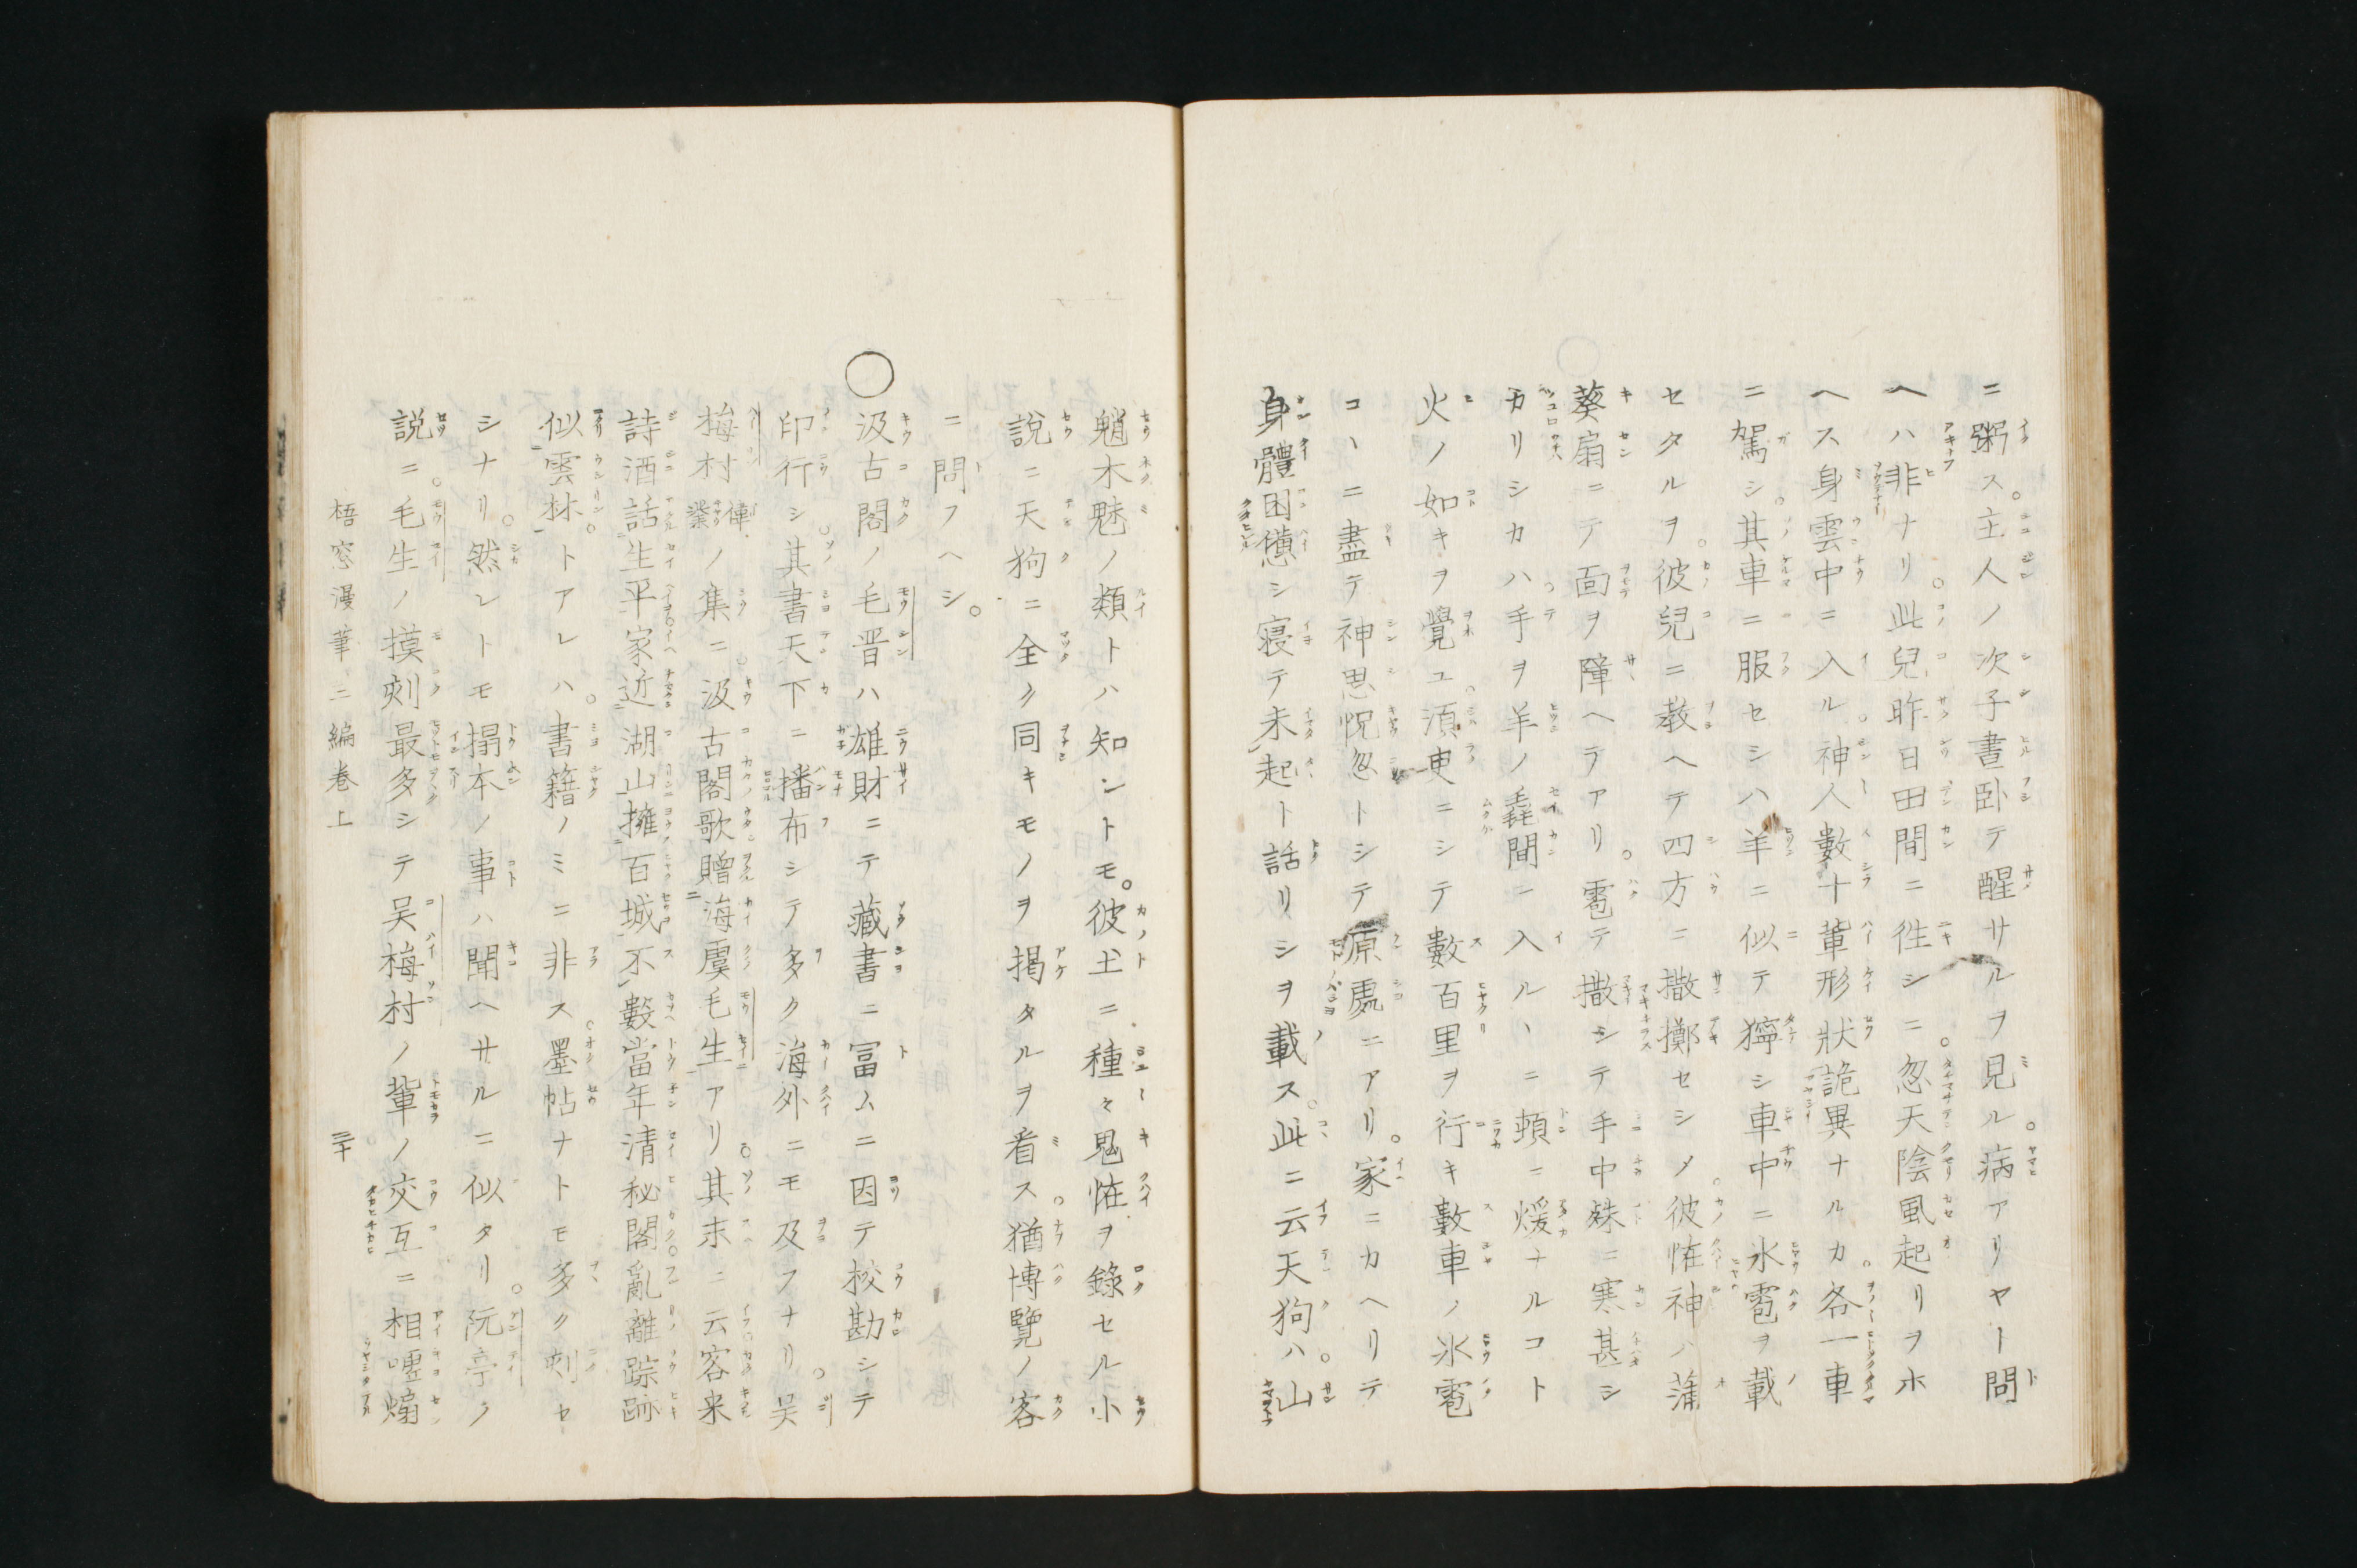 ニ粥ス。主人ノ次子晝卧テ醒サルヲ見ル。病アリヤト問
ヘハ非ナリ。此兒昨日田間ニ徃シニ。忽天陰風起リヲホ
ヘス身雲中ニ入ル。神人數十軰形狀詭異ナルカ。各一車
ニ駕シ。其車ニ服セシハ羊ニ似テ獰シ車中ニ氷雹ヲ載
セタルヲ。彼兒ニ教ヘテ四方ニ撒擲セシメ。彼恠神ハ蒲
葵扇ニテ面ヲ障ヘテアリ。雹テ撒シテ手中殊ニ寒甚シ
カリシカハ。手ヲ羊ノ毳間ニ入ルヽニ頓ニ煖ナルコト
火ノ如キヲ覺ユ。須臾ニシテ數百里ヲ行キ數車ノ氷雹
コヽニ盡テ神思怳忽トシテ原處ニアリ。家ニカヘリテ
身體困憊シ寝テ未起ト話リシヲ載ス。此ニ云天狗ハ。山
魈木魅ノ類トハ知ントモ。彼土ニ種々鬼恠ヲ錄セル小
說ニ天狗ニ全ク同キモノヲ掲タルヲ看ス。猶博覽ノ客
ニ問フヘシ。
○汲古閣ノ毛晋ハ雄財ニテ藏書ニ冨ムニ因テ校勘シテ
印行シ。其書天下ニ播布シテ多ク海外ニモ及フナリ。吴
梅村偉業ノ集ニ。汲古閣歌贈海虞毛生アリ。其末ニ云客来
詩酒話生平家近湖山擁百城不數當年清秘閣亂離踪跡
似雲林。トアレハ。書籍ノミニ非ス。墨帖ナトモ多ク刻セ
シナリ。然レトモ搨本ノ事ハ聞ヘサルニ似タリ。阮亭ノ
説ニ。毛生ノ摸刻最多シテ吴梅村ノ軰ノ交互ニ相嘘煽
梧窓漫筆三編卷上　三十